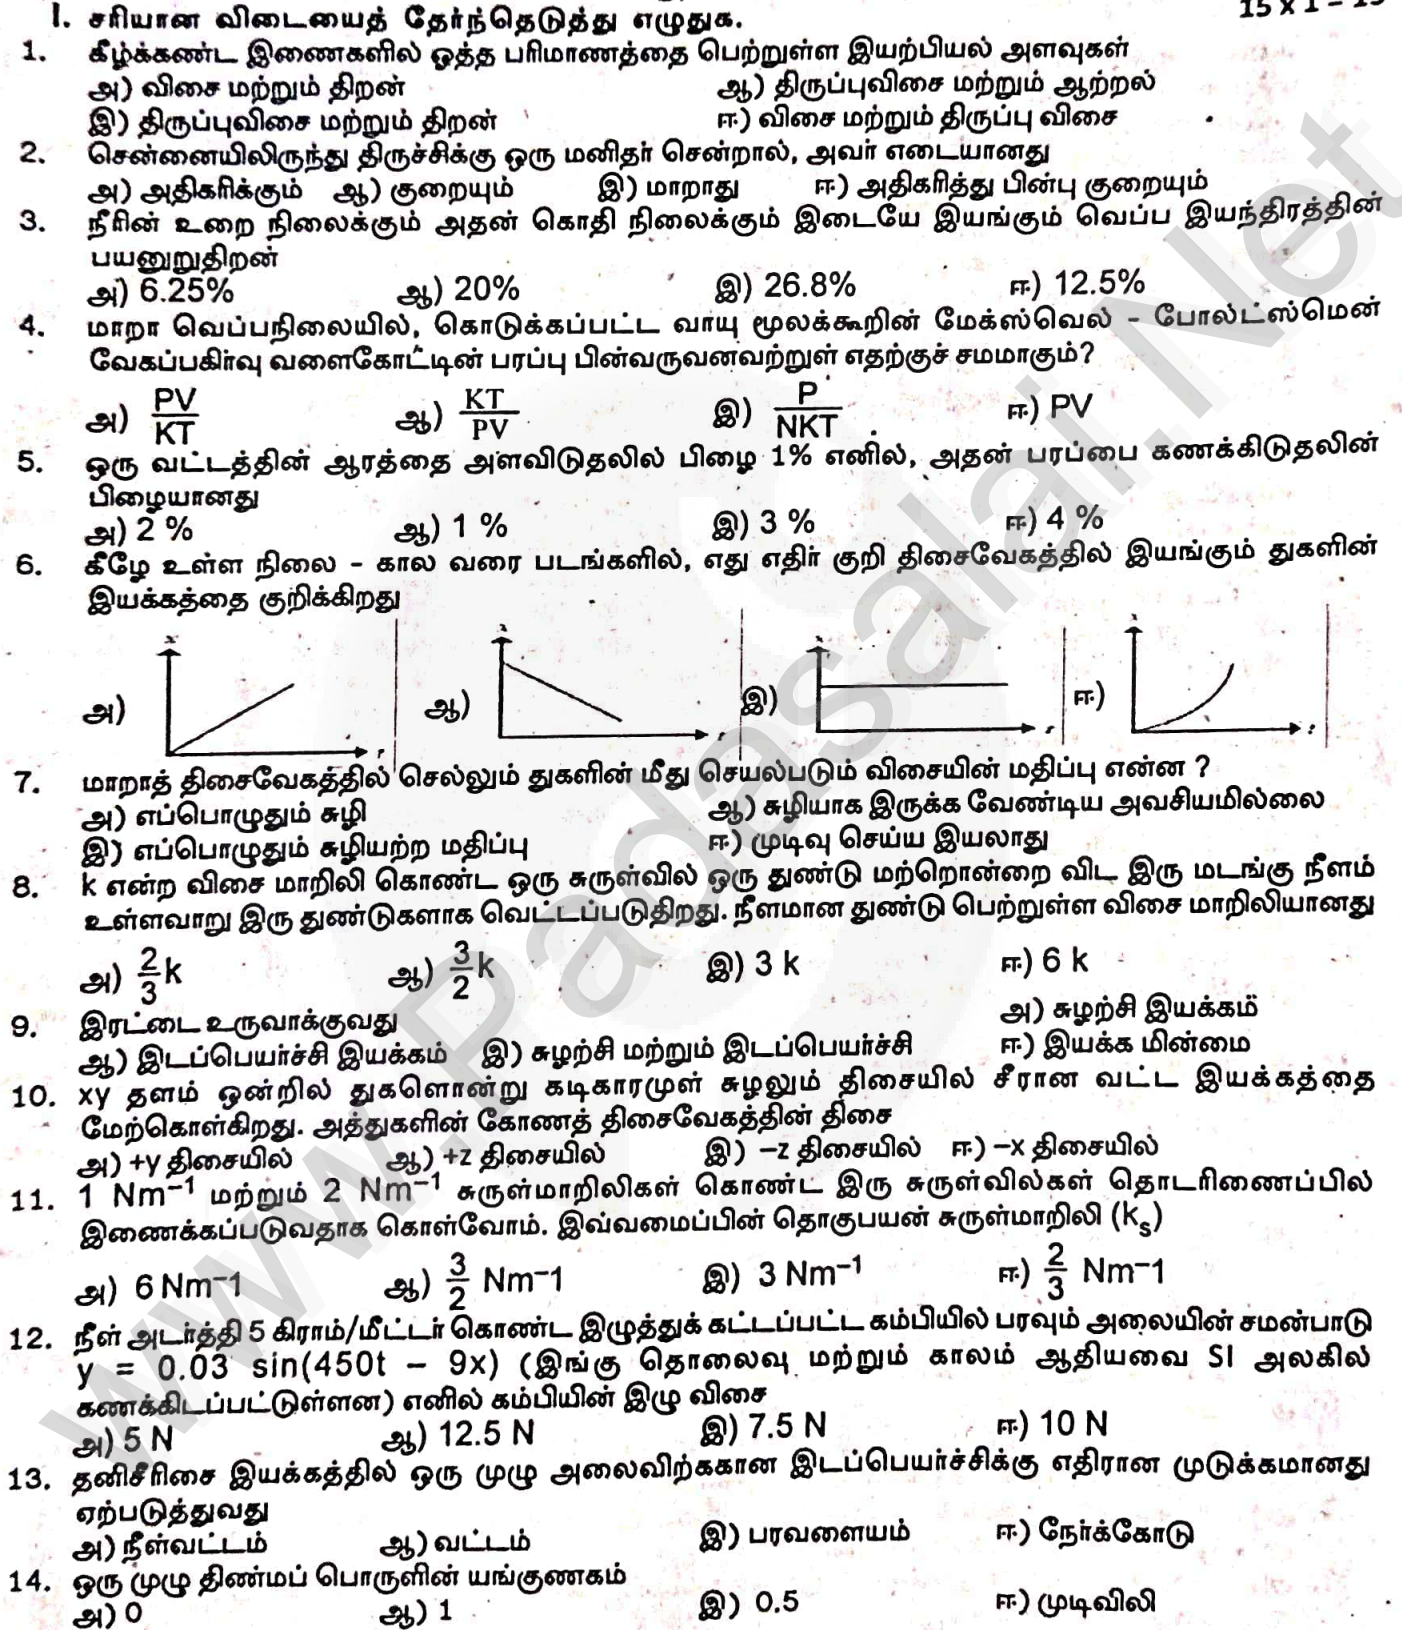 I. சரியான விடையைத் தேர்ந்தெடுத்து எழுதுக. 15 x 1 = 15
1. கீழ்க்கண்ட இணைகளில் ஒத்த பரிமாணத்தை பெற்றுள்ள இயற்பியல் அளவுகள்
அ) விசை மற்றும் திறன் ஆ) திருப்புவிசை மற்றும் ஆற்றல்
இ) திருப்புவிசை மற்றும் திறன் ஈ) விசை மற்றும் திருப்பு விசை
2. சென்னையிலிருந்து திருச்சிக்கு ஒரு மனிதர் சென்றால், அவர் எடையானது
அ) அதிகரிக்கும் ஆ) குறையும் இ) மாறாது ஈ) அதிகரித்து பின்பு குறையும்
3. நீரின் உறை நிலைக்கும் அதன் கொதி நிலைக்கும் இடையே இயங்கும் வெப்ப இயந்திரத்தின்
பயனுறுதிறன்
அ) 6.25% ஆ) 20% இ) 26.8% ஈ) 12.5%
4. மாறா வெப்பநிலையில், கொடுக்கப்பட்ட வாயு மூலக்கூறின் மேக்ஸ்வெல் - போல்ட்ஸ்மென்
வேகப்பகிர்வு வளைகோட்டின் பரப்பு பின்வருவனவற்றுள் எதற்குச் சமமாகும்?
அ) PV/KT ஆ) KT/PV இ) P/NKT ஈ) PV
5. ஒரு வட்டத்தின் ஆரத்தை அளவிடுதலில் பிழை 1% எனில், அதன் பரப்பை கணக்கிடுதலின்
பிழையானது
அ) 2 % ஆ) 1 % இ) 3 % ஈ) 4 %
6. கீழே உள்ள நிலை - கால வரை படங்களில், எது எதிர் குறி திசைவேகத்தில் இயங்கும் துகளின்
இயக்கத்தை குறிக்கிறது
அ) x t ஆ) x t இ) x t ஈ) x t
7. மாறாத் திசைவேகத்தில் செல்லும் துகளின் மீது செயல்படும் விசையின் மதிப்பு என்ன ?
அ) எப்பொழுதும் சுழி ஆ) சுழியாக இருக்க வேண்டிய அவசியமில்லை
இ) எப்பொழுதும் சுழியற்ற மதிப்பு ஈ) முடிவு செய்ய இயலாது
8. k என்ற விசை மாறிலி கொண்ட ஒரு சுருள்வில் ஒரு துண்டு மற்றொன்றை விட இரு மடங்கு நீளம்
உள்ளவாறு இரு துண்டுகளாக வெட்டப்படுதிறது. நீளமான துண்டு பெற்றுள்ள விசை மாறிலியானது
அ) 2/3 k ஆ) 3/2 k இ) 3 k ஈ) 6 k
9. இரட்டை உருவாக்குவது அ) சுழற்சி இயக்கம்
ஆ) இடப்பெயர்ச்சி இயக்கம் இ) சுழற்சி மற்றும் இடப்பெயர்ச்சி ஈ) இயக்க மின்மை
10. xy தளம் ஒன்றில் துகளொன்று கடிகாரமுள் சுழலும் திசையில் சீரான வட்ட இயக்கத்தை
மேற்கொள்கிறது. அத்துகளின் கோணத் திசைவேகத்தின் திசை
அ) +y திசையில் ஆ) +z திசையில் இ) −z திசையில் ஈ) −x திசையில்
11. 1 Nm⁻¹ மற்றும் 2 Nm⁻¹ சுருள்மாறிலிகள் கொண்ட இரு சுருள்வில்கள் தொடரிணைப்பில்
இணைக்கப்படுவதாக கொள்வோம். இவ்வமைப்பின் தொகுபயன் சுருள்மாறிலி (kₛ)
அ) 6 Nm−1 ஆ) 3/2 Nm−1 இ) 3 Nm⁻¹ ஈ) 2/3 Nm−1
12. நீள் அடர்த்தி 5 கிராம்/மீட்டர் கொண்ட இழுத்துக் கட்டப்பட்ட கம்பியில் பரவும் அலையின் சமன்பாடு
y = 0.03 sin(450t − 9x) (இங்கு தொலைவு மற்றும் காலம் ஆதியவை SI அலகில்
கணக்கிடப்பட்டுள்ளன) எனில் கம்பியின் இழு விசை
அ) 5 N ஆ) 12.5 N இ) 7.5 N ஈ) 10 N
13. தனிசீரிசை இயக்கத்தில் ஒரு முழு அலைவிற்ககான இடப்பெயர்ச்சிக்கு எதிரான முடுக்கமானது
ஏற்படுத்துவது
அ) நீள்வட்டம் ஆ) வட்டம் இ) பரவளையம் ஈ) நேர்க்கோடு
14. ஒரு முழு திண்மப் பொருளின் யங்குணகம்
அ) 0 ஆ) 1 இ) 0.5 ஈ) முடிவிலி
www.Padasalai.Net